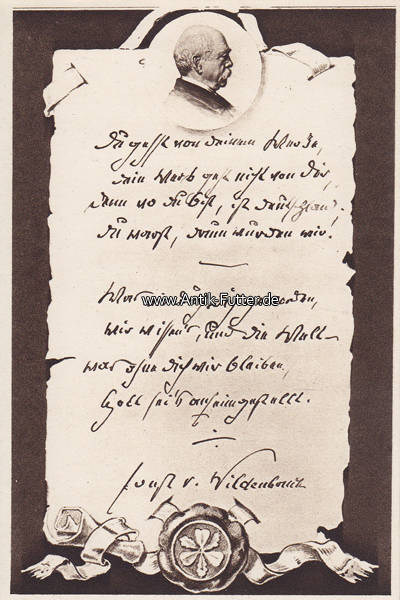 Du gehst von deinem Werke,
dein Werk geht nicht von dir,
denn wo du bist, ist Deutschland,
du warst, drum wurden wir.
—
Was wir durch dich geworden,
wir wissen's, und die Welt –
was ohne dich wir bleiben,
Gott sei's anheimgestellt.
Ernst v. Wildenbruch
www.Antik-Futter.de